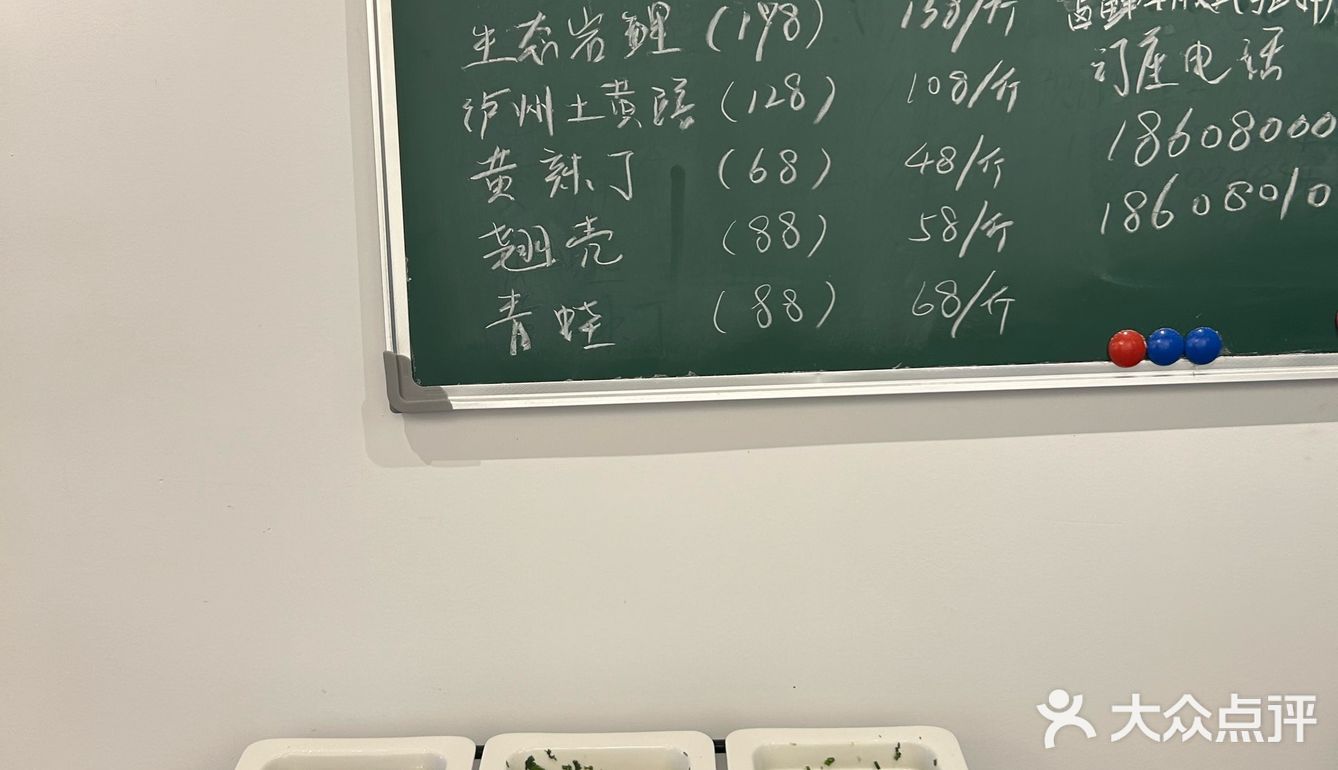 生态岩鲤 (198) 138/斤
泸州土黄鳝 (128) 108/斤
黄辣丁 (68) 48/斤
翘壳 (88) 58/斤
青蛙 (88) 68/斤
订座电话
18608000
18608010
大众点评